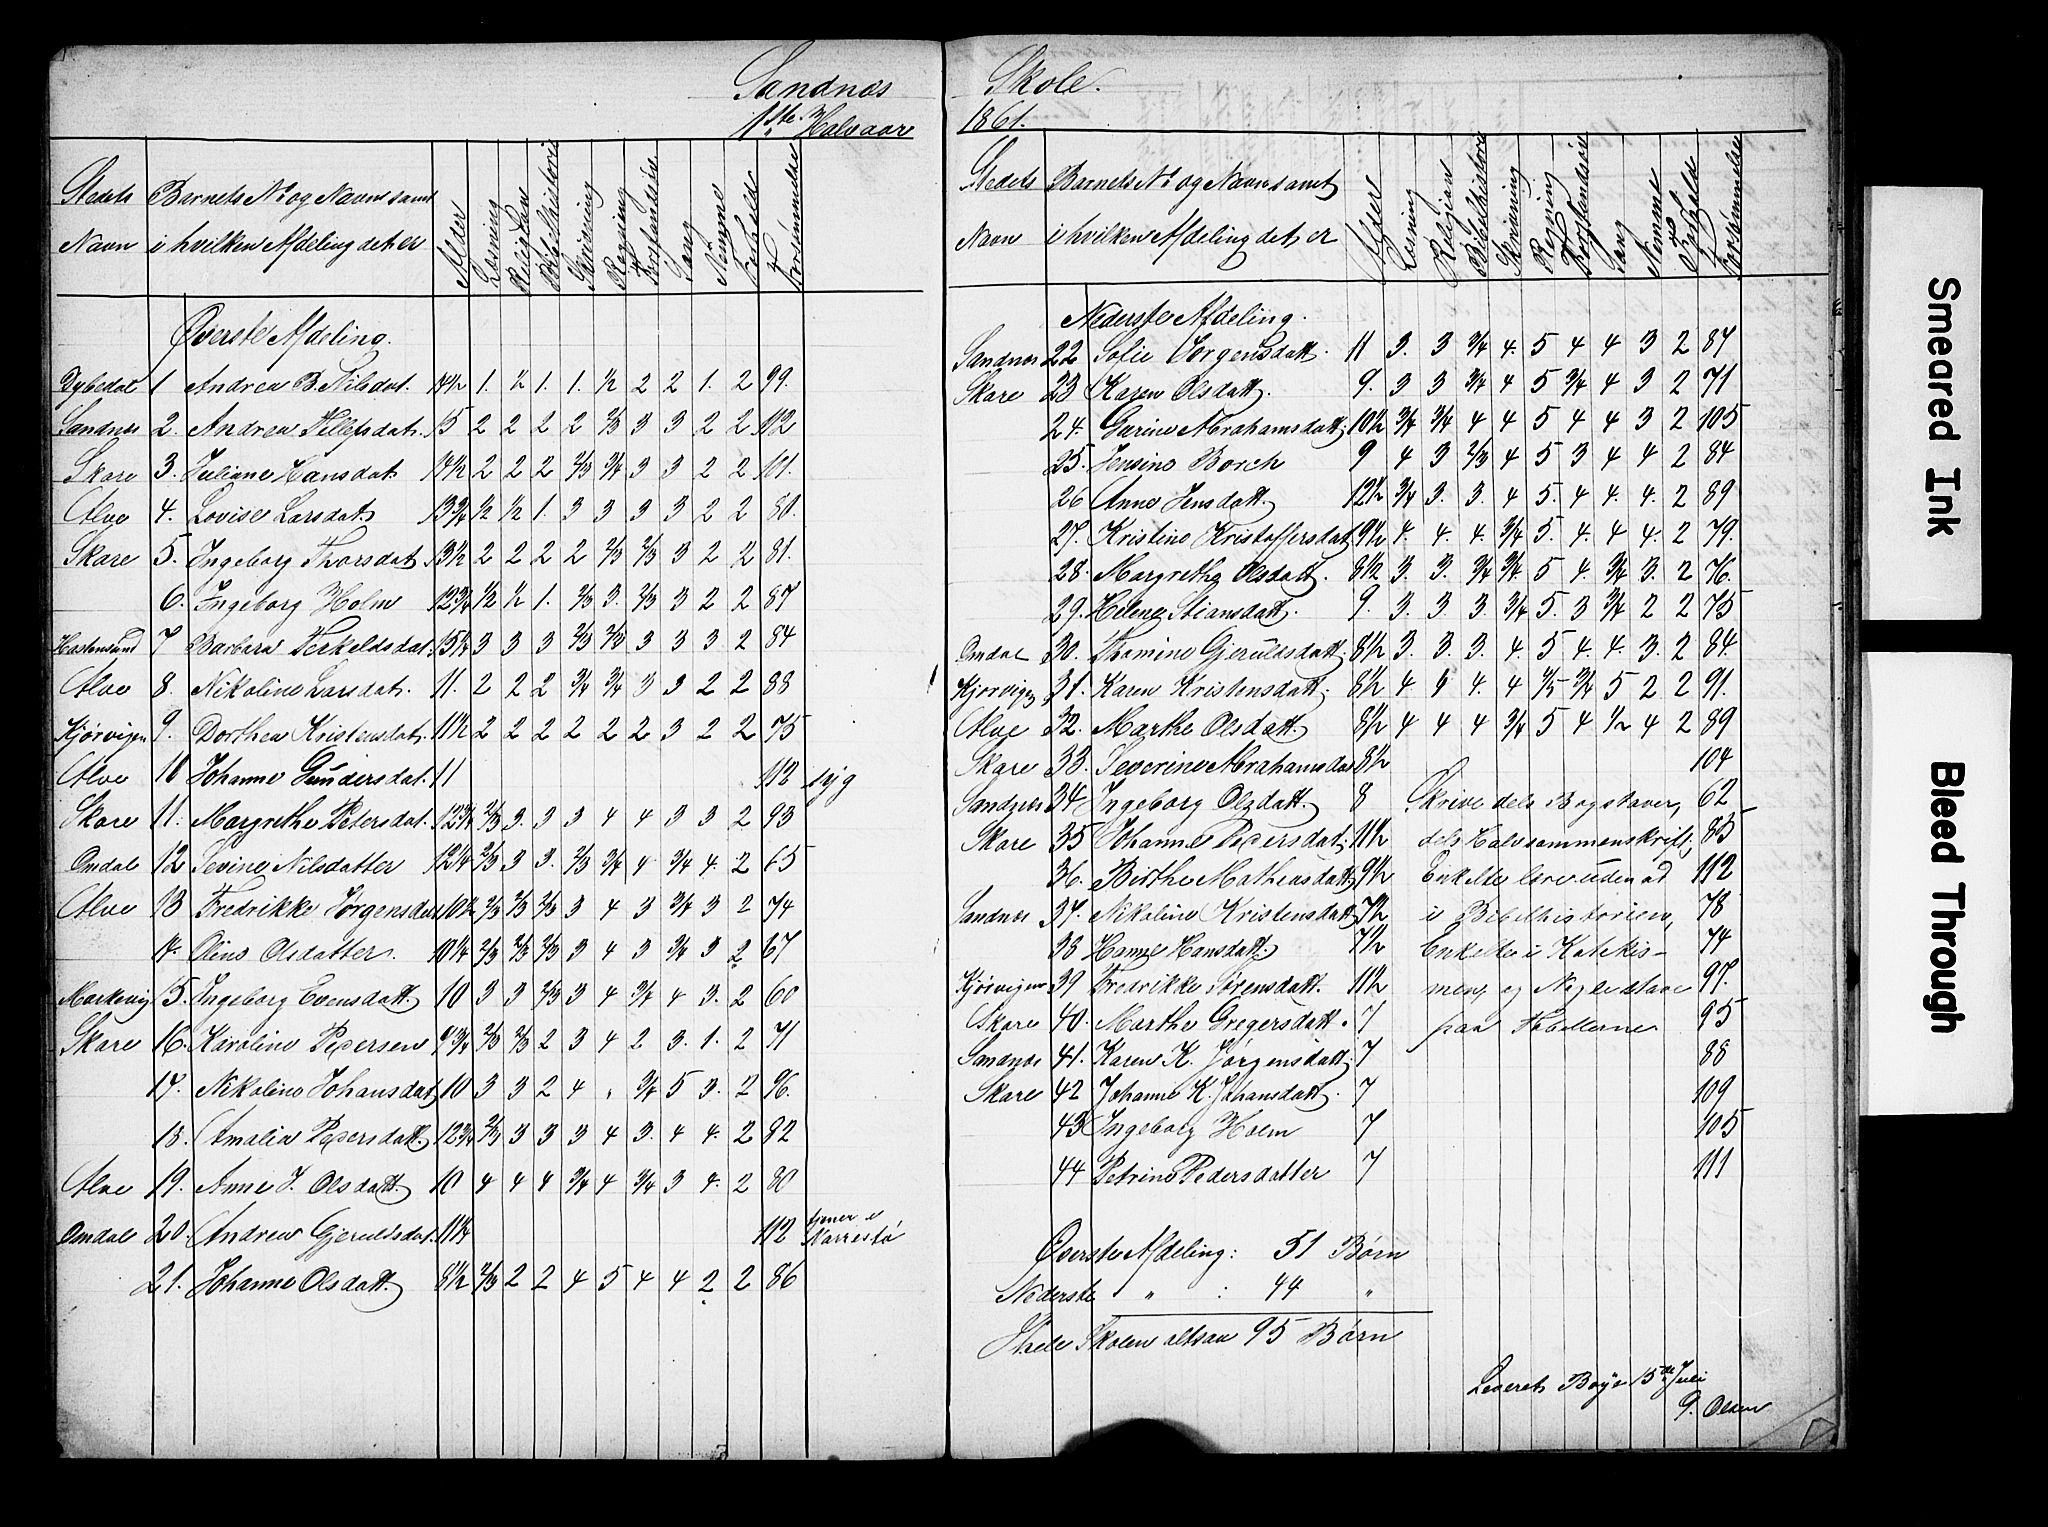 Sandnæs
1ste Halvaar
Stedets Navn | Barnets No og Navn samt i hvilken Afdeling det er | Alder | Læsning | Religion | Bibelhistorie | Skrivning | Regning | Forstandsøv. | Sang | Nemme | Forhold | Forsømmelse
Øverste Afdeling.
Dybedal 1 Andrea B. Nilsdat. 14½ 1. ½ 1. 1. ½ 2 2 1. 2 99.
Sandnæs 2. Andrea Tellefsdat. 15 2 2 2 2 2/3 3 3 2 2 112
Skare 3. Juliane Hansdat. 14½ 2 2 2 2/3 3/4 3 3 2 2 101.
Alve 4. Lovise Larsdat. 13¾ ½ ½ 1. 3 3 3 3 2 2 80.
Skare 5. Ingeborg Thorsdat. 13½ 2 2 2 2 2/3 2/3 3 2 2 81.
6. Ingeborg Holm 12¾ ½ ½ 1. 2/3 3. 2/3 3 2 2 87
Hastensund 7 Barbara Terkeldsdat. 15¼ 3 3 3 2/3 2/3 3 3 3 2 84
Alve 8. Nikoline Larsdat. 11. 2 2 2 3/4 3/4 3 3 2 2 88
Kjørvigen 9. Dorthea Kristensdat. 11½ 2 2 2 2 2 2 3 2 2 75
Alve 10 Johanne Gundersdat. 11 112 syg
Skare 11. Margrethe Petersdat. 12¾ 2/3 3. 3 3 4 4 3 3 2 93
Omdal 12 Sevine Nilsdatter 12¼ 2/3 3 3. 2/3 3/4 4 3/4 4. 2 65
Alve 13 Fredrikke Jørgensdat 10½ 2/3 2/3 2/3 3 4 3 3/4 3 2 74
14. Oline Olsdatter. 10¼ 2/3 2/3 2/3 3 4 3 3/4 3 2 67
Markevig 15. Ingeborg Evensdatt. 10 3 3 2/3 3 4 3/4 4 3. 2 60
Skare 16. Karoline Pedersen 9¾ 2/3 2/3 2 3 4 2 3. 1. 2 71
17. Nikoline Johansdat 10 3 3 2 4 " 3/4 5 3. 2 96.
18. Amalia Pedersdatt. 12¾ 2/3 3 3 3 4 3. 4 4. 2 82
Alve 19. Anne J. Olsdatt. 10 4 4 4 3/4 4 3/4 3 4. 2 80
Omdal 20. Andrea Gjeruldsdat. 11¼ 112 tjener i Narrestø
21. Johanne Olsdatt. 8½ 2/3 2 2 4 5 4 4 2 2 86
Skole.
1861.
Stedets Navn | Barnets No og Navn samt i hvilken Afdeling det er | Alder | Læsning | Religion | Bibelhistorie | Skrivning | Regning | Forstandsøv | Sang | Nemme | Forhold | Forsømmelse
Nederste Afdeling.
Sandnæs 22 Sofie Jørgensdatt. 11 3. 3 3/4 4. 5 4 4 3 2 87
Skare 23 Karen Olsdatt. 9. 3 3 3/4 4 5 3/4 4 3 2 71
24. Gurine Abrahamsdatt. 10½ 3/4 3/4 4 4 5 4 4 3 2 105
25. Jensine Borch 9 4 3 2/3 4 5 3 4 4 2 84
26 Anne Jensdatt. 12½ 3/4 3. 3. 4 5. 4 4. 4. 2 89
27. Kristine Kristoffersdat 9½ 4. 4. 4. 3/4 5. 4. 4. 4. 2 79.
28. Margrethe Olsdatt. 8½ 3. 3. 3/4 3/4 5 4. 3/4 3. 2 76.
29. Helene Stiansdatt. 9. 3. 3 3 3/4 5. 3 3/4 2 2 75
Omdal 30. Thomine Gjeruldsdatt. 8½ 3. 3. 3. 4. 5 4. 4. 3. 2 84
Kjørvigen 31. Karen Kristensdatt. 8½ 4 4 4. 4 4/5 3/4 5 2 2 91.
Alve 32. Marthe Olsdatt. 8½ 4 4 4 3/4 5 4 ½ 4 2 89
Skare 33. Severine Abrahamsdat 8½ 104
Sandnæs 34. Ingeborg Olsdatt. 8 Skrive dels Bogstaver, 62
Skare 35 Johanne Pedersdat. 11½ dels Halvsammenskrift; 85
36. Birthe Mathensdatt. 9½ Enkelte lære uden ad 112
Sandnæs 37. Nikoline Kristensdatt. 7½ i Bibelhistorien, 78
38 Hanne Hansdatt. 7½ Enkelte i Katekis- 74
Kjørvigen 39 Fredrikke Sørensdatt. 11½ men, og Nogle stave 97.
Skare 40. Marthe Gregersdatt. 7 paa Tabellerne 95
Sandnæs 41. Karen K. Jørgensdatt. 7 88
Skare 42 Johanne K. Johansdatt. 7 109
43 Ingeborg Holm 7 105
44 Petrine Pedersdatter 7 111
Øverste Afdeling: 51 Børn
Nederste " : 44 "
Hele Skolen altsaa 95 Børn
Leveret Boye 15de Juli
G. Olsen
Smeared Ink
Bleed Through